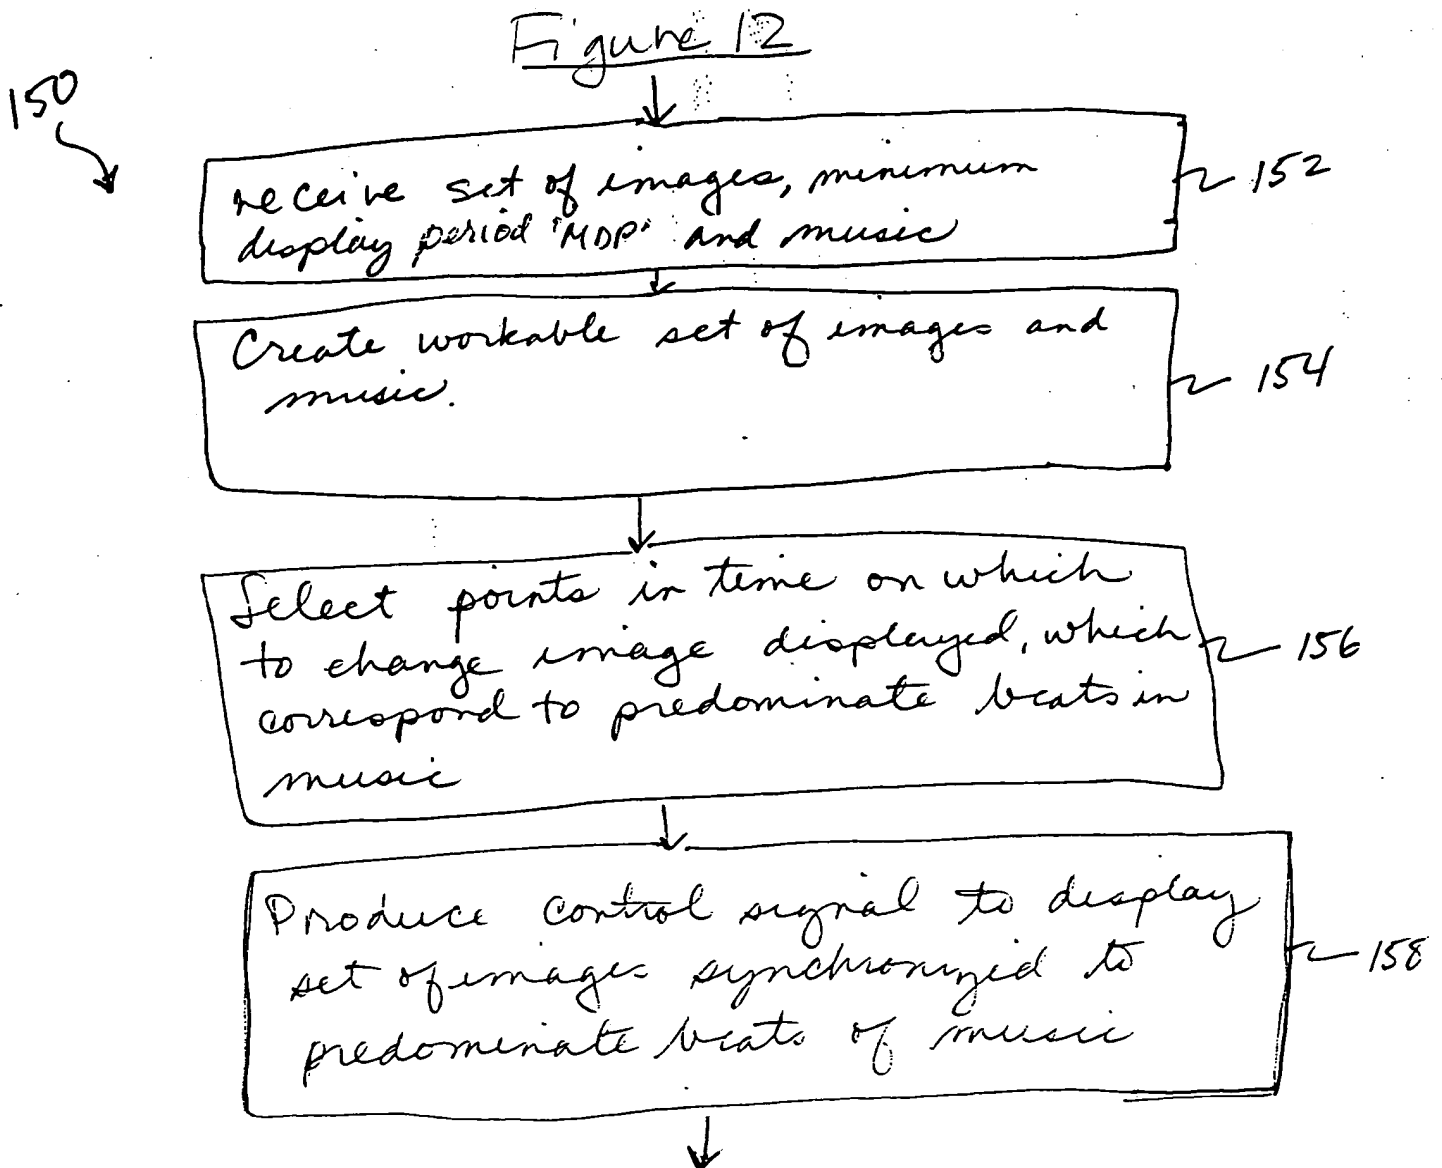 Figure 12
150
receive set of images, minimum
display period 'MDP' and music
152
Create workable set of images and
music.
154
Select points in time on which
to change image displayed, which
correspond to predominate beats in
music
156
Produce control signal to display
set of images synchronized to
predominate beats of music
158